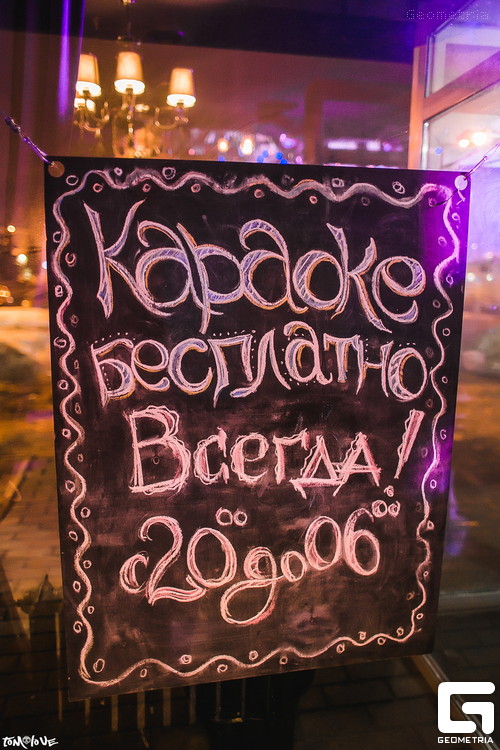 Geometria
Караоке
бесплатно
Всегда!
с 20⁰⁰ до 06⁰⁰
GEOMETRIA